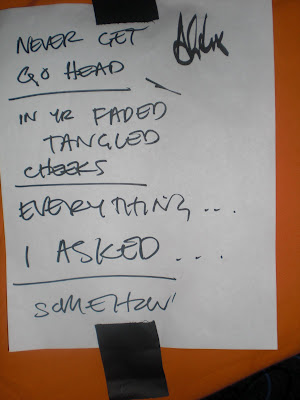 NEVER GET
GO HEAD
IN YR FADED
TANGLED
CHEEKS
EVERYTHING...
I ASKED...
SOMEHOW